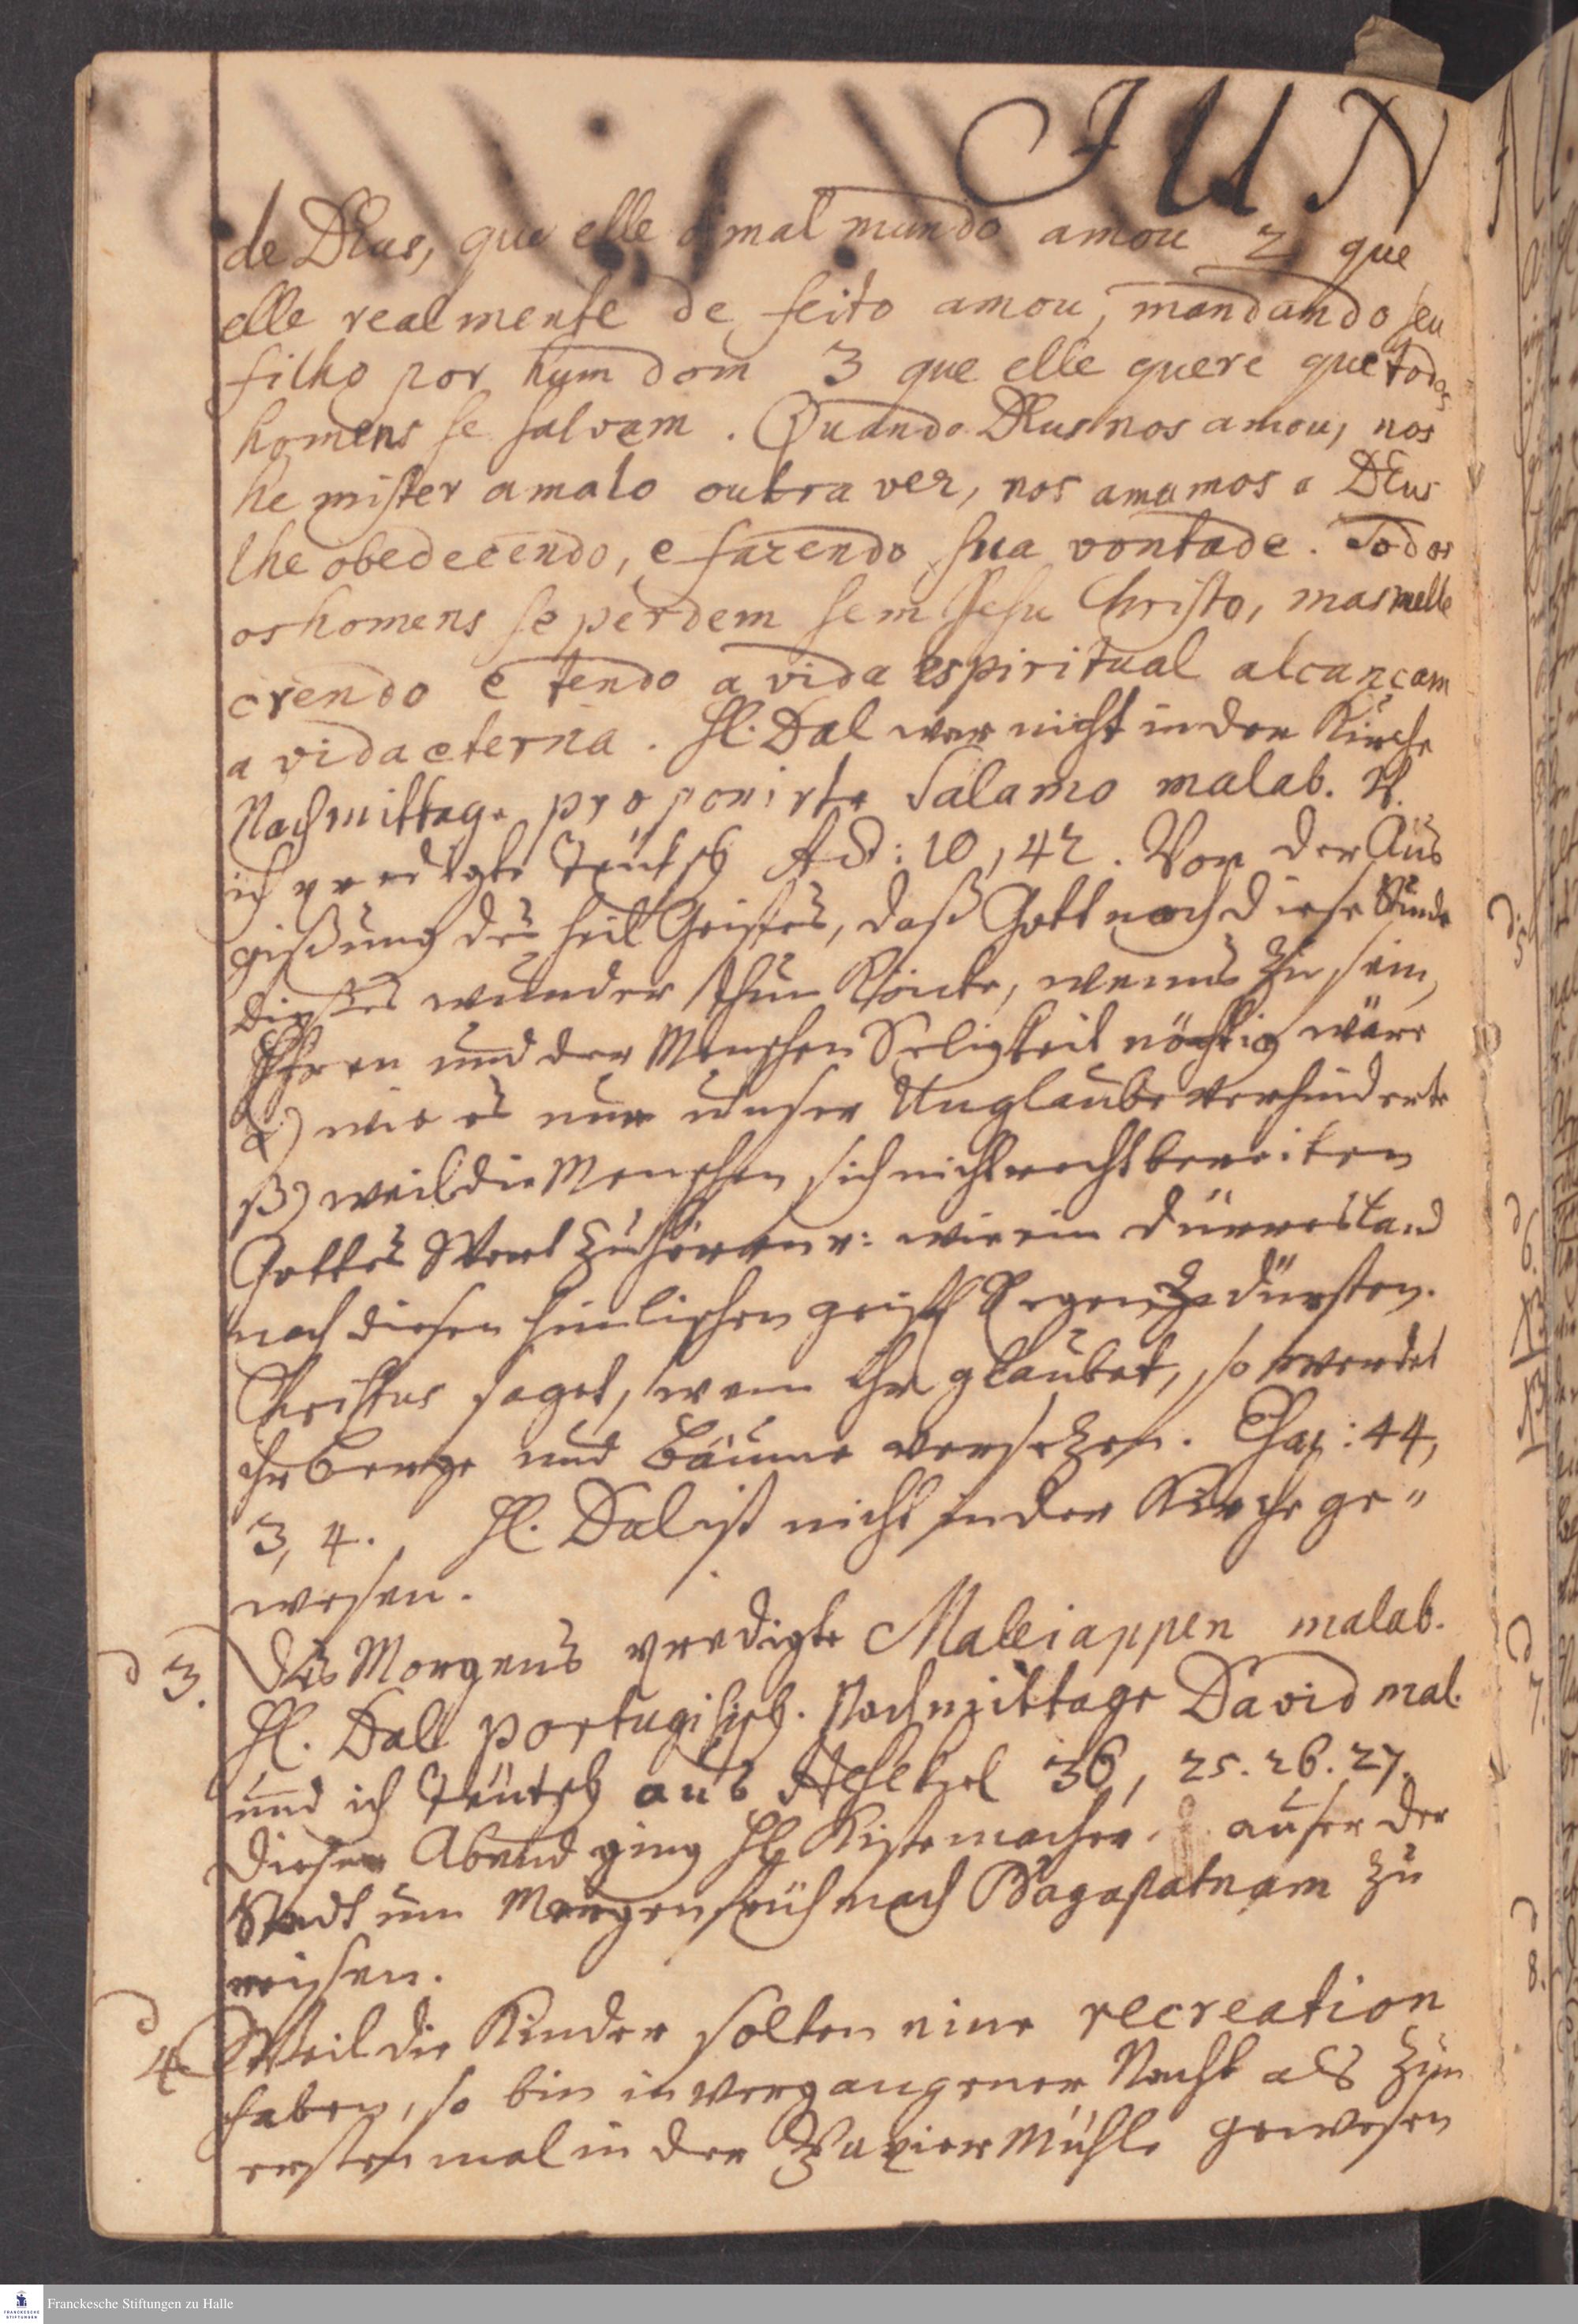 JUN
de DEus, que elle o mal mundo amou 2 que
elle realmente de feito amou, mandando seu
filho por hum dom 3 que elle quere que todos
homens se salvam. Quando DEus nos amou, nos
he mister amalo outra vez, nos amamos a DEus
lhe obedecendo, e fazendo sua vontade. Todos
os homens se perdem sem Jesu Christo, mas nelle
crendo e tendo a vida espiritual alcançam
a vida eterna. H. Dal war nicht in der Kirche
Nachmittage proponirte Salamo malab. u.
ich predigte Teütsch Act: 10, 42. Von der Aus
gißung des heil Geistes, daß Gott noch diese Stunde
dießes wunder thun könte, wenns zu sein,
Ehren und der Menschen Seligkeit nöthig wäre
α) wie es nur unser Unglaube verhinderte
β) weil die Menschen sich nicht recht bereiten
Gottes Wort zu hören u: wie ein dürres Land
nach diesen himlischen geistl Regen dürsten.
Christus saget, wenn ihr glaubet, so werdet
ihr berge und Bäume versezen. Esai: 44,
3, 4. H. Dal ist nicht in der Kirche ge"
wesen.
d 3. Des Morgens predigte Maleiappen malab.
H. Dal portugisisch. Nachmittage David mal.
und ich Teütsch aus Hesekiel 36, 25. 26. 27.
Diesen Abend ging H. Kistemacher auser der
Stadt um Morgen früh nach Nagapatnam zu
reisen.
d 4. Weil die Kinder solten eine recreation
haben, so bin in vergangener Nacht als zum
ersten mal in der Papier Mühle gewesen
d 5
d 6.
d 7.
d 8.
Franckesche Stiftungen zu Halle